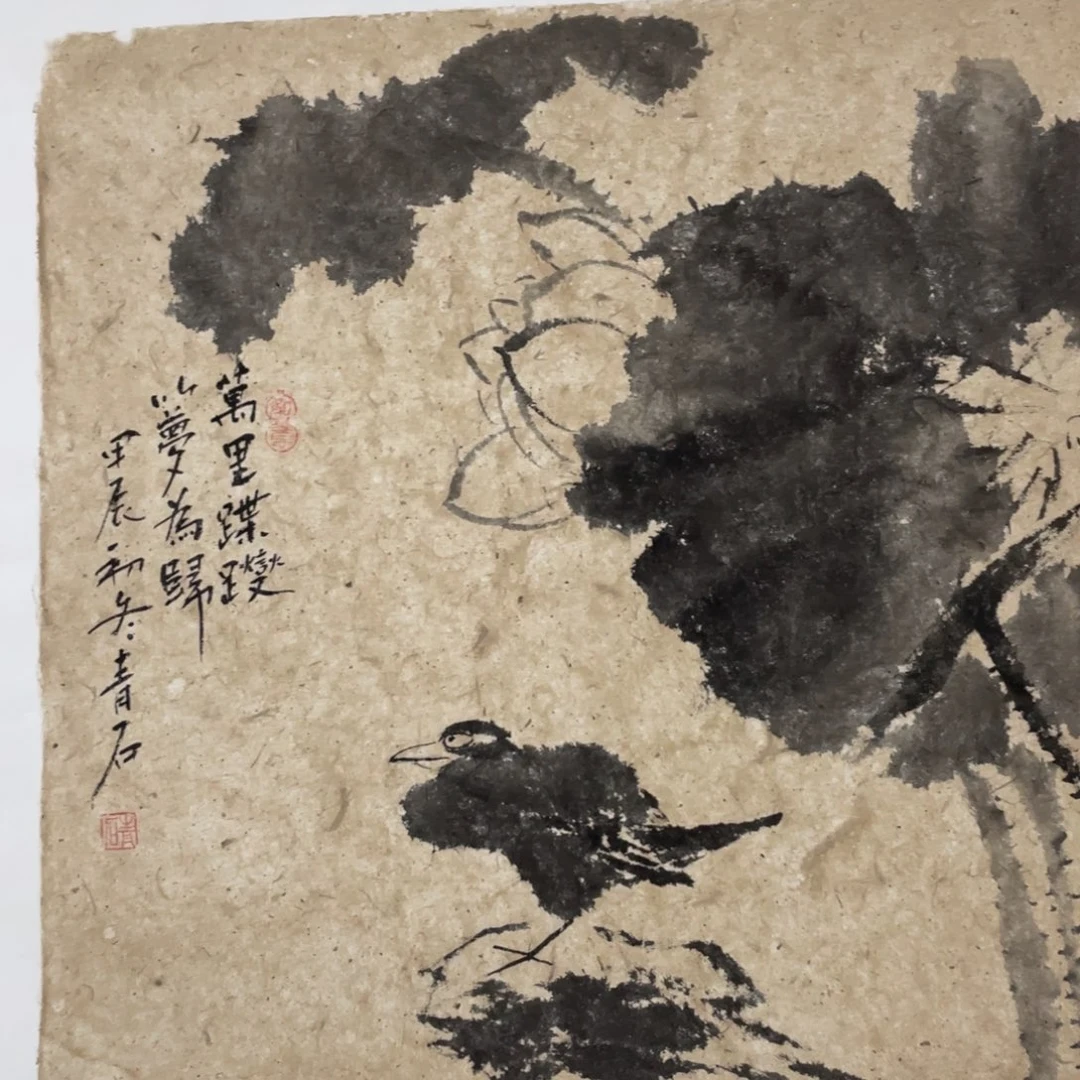 萬里蹀躞
以夢為歸
甲辰初冬青石
青石